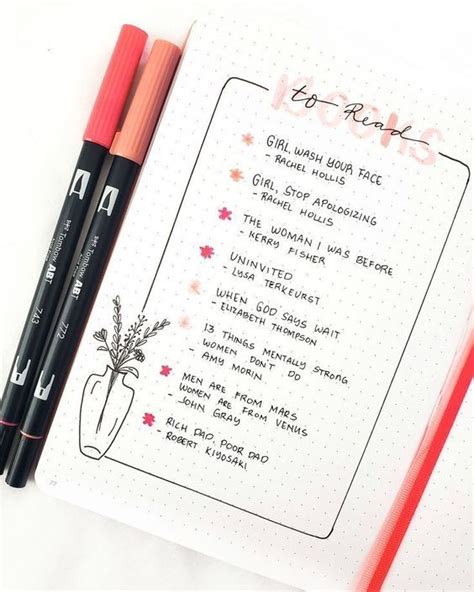 BOOKS
to Read
GIRL, WASH YOUR FACE
- RACHEL HOLLIS
GIRL, STOP APOLOGIZING
- RACHEL HOLLIS
THE WOMAN I WAS BEFORE
- KERRY FISHER
UNINVITED
- LYSA TERKEURST
WHEN GOD SAYS WAIT
- ELIZABETH THOMPSON
13 THINGS MENTALLY STRONG
WOMEN DON'T DO
- AMY MORIN
MEN ARE FROM MARS
WOMEN ARE FROM VENUS
- JOHN GRAY
RICH DAD, POOR DAD
- ROBERT KIYOSAKI
Tombow ABT
743
Tombow ABT
772